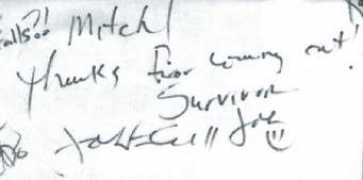 alls?! Mitch!
Thanks for coming out!
Survivor
Joe